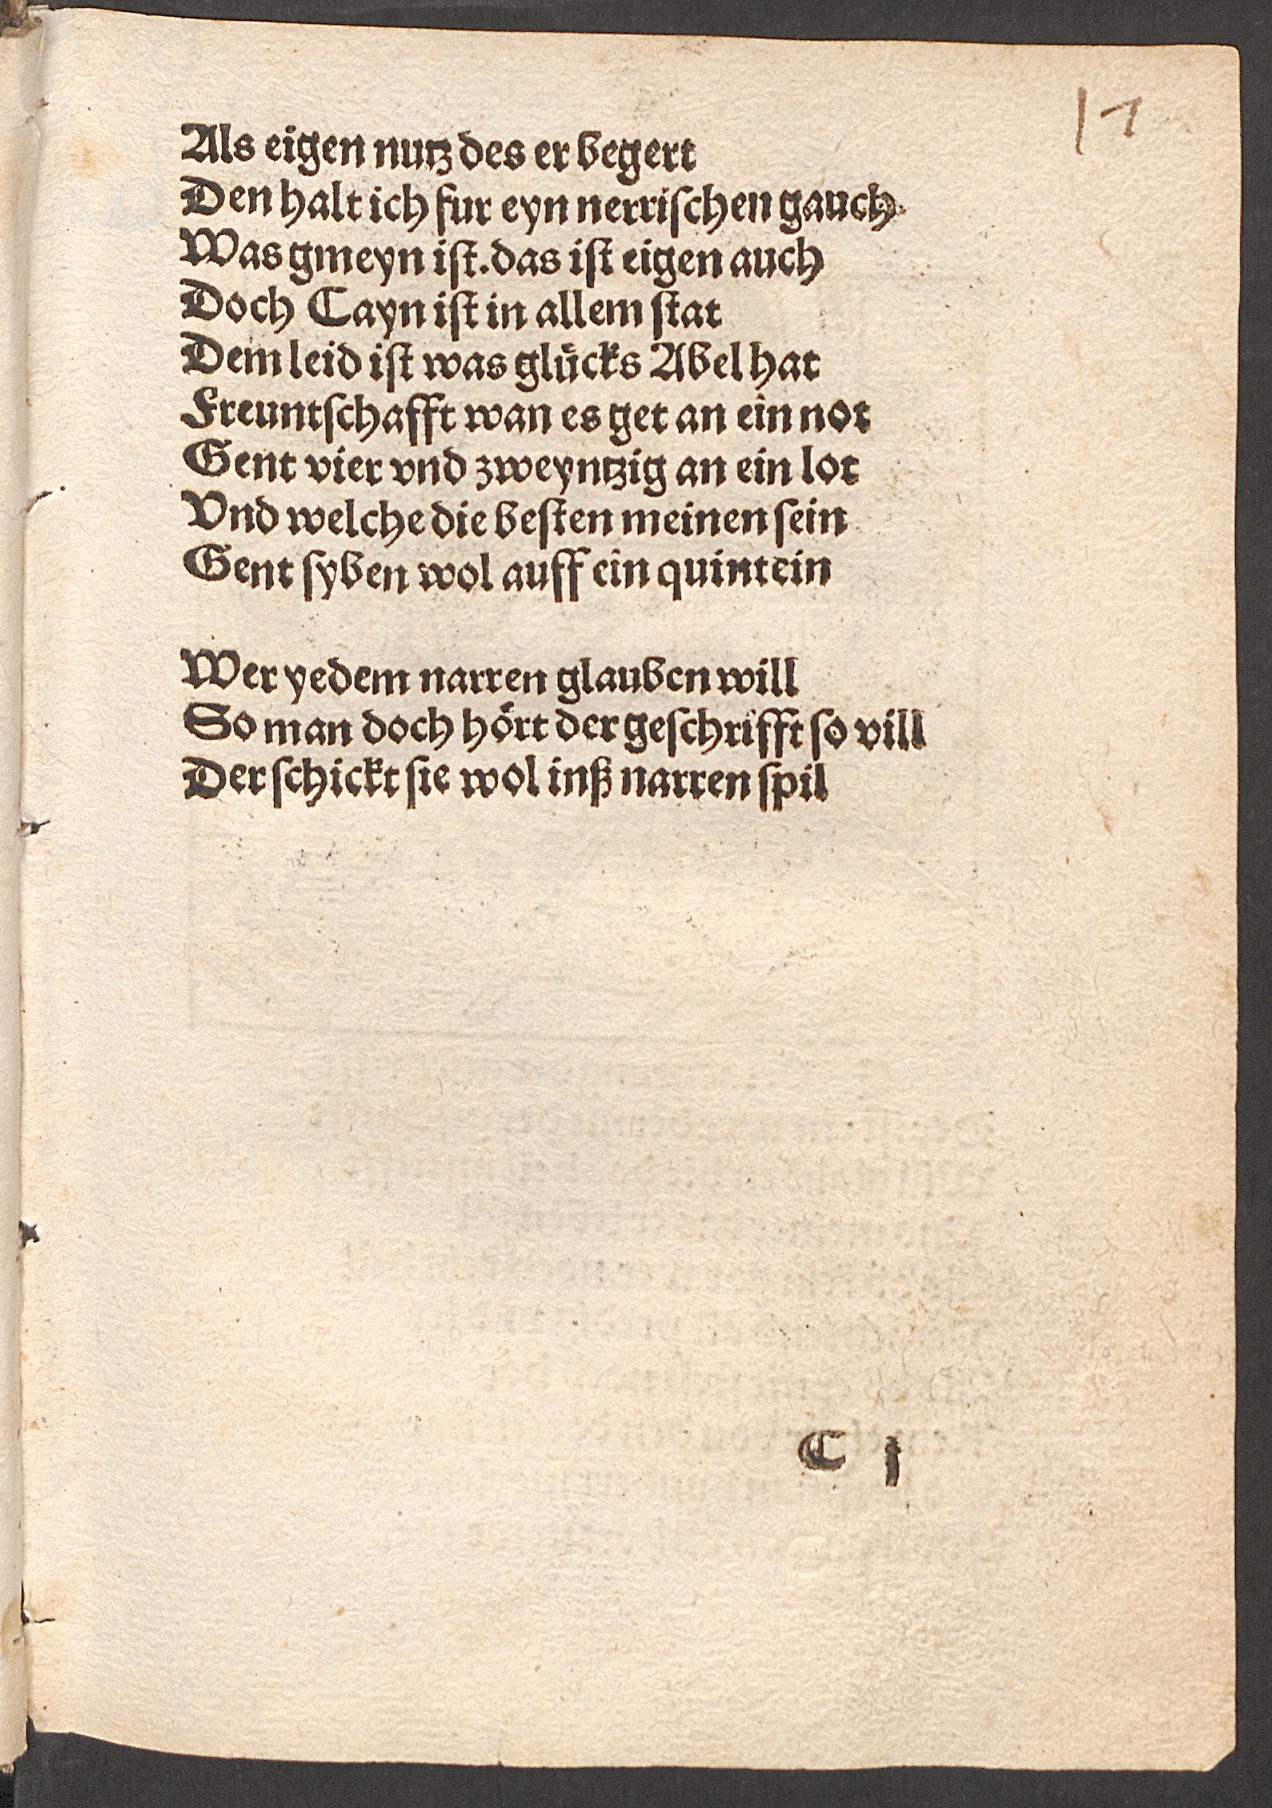 17
Als eigen nutz des er begert
Den halt ich fur eyn nerrischen gauch
Was gmeyn ist. das ist eigen auch
Doch Cayn ist in allem stat
Dem leid ist was glücks Abel hat
Freuntschafft wan es get an ein not
Gent vier vnd zweyntzig an ein lot
Vnd welche die besten meinen sein
Gent syben wol auff ein quintein
Wer yedem narren glauben will
So man doch hört der geschrifft so vill
Der schickt sie wol inß narren spil
C j